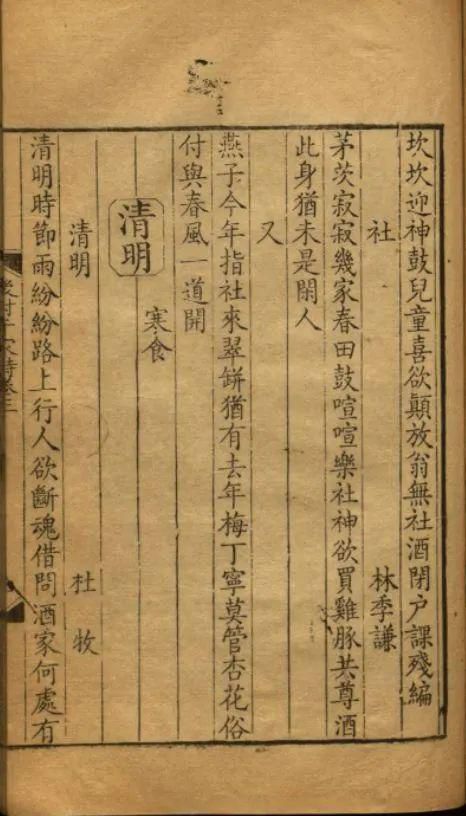 坎坎迎神鼓兒童喜欲顛放翁無社酒閉户課殘編
社　林季謙
茅茨寂寂幾家春田鼓喧喧樂社神欲買雞豚共尊酒
此身猶未是閑人
又
燕子今年掯社來翠缾猶有去年梅丁寧莫管杏花俗
付與春風一道開
清明
寒食
清明　杜牧
清明時節雨紛紛路上行人欲斷魂借問酒家何處有
後村千家詩卷三